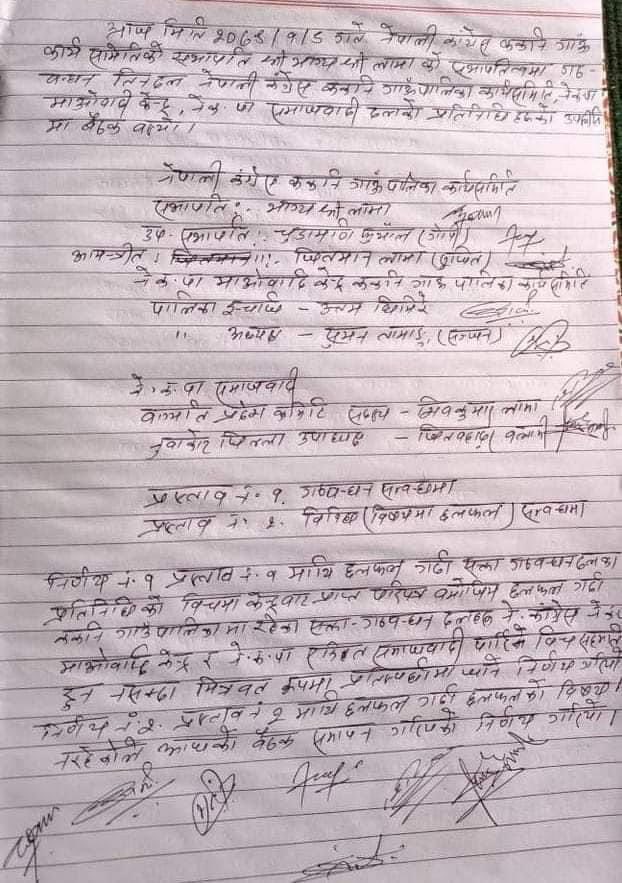 आज मिति २०७९/१/८ गते नेपाली कांग्रेस ककनि गाउँ
कार्य समितिको सभापति श्री भाग्य श्री लामा को सभापतित्वमा गठ-
बन्धन तिनदल नेपाली कंग्रेस ककनि गाउँपालिका कार्यसमिति, ने.क.पा
माओवादी केन्द्र, ने.क.पा समाजवादी दलको प्रतिनिधि हरुको उपस्थिति
मा बैठक बस्यो।
नेपाली कंग्रेस ककनि गाउँपालिका कार्यसमिति
सभापति :- भाग्य श्री लामा
उप. सभापति :- चुडामणि कुमाल (गोपी)
आमन्त्रीत : जितमान लामा
ने.क.पा माओवादि केन्द्र ककनि गाउँ पालिका कार्यसमिति
पालिका इन्चार्ज - उत्तम घिमिरे
" अध्यक्ष - सुमन तामाङ्ग
ने.क.पा समाजवादी
बाग्मति प्रदेश कमिटि सदस्य - शिवकुमार लामा
नुवाकोट जिल्ला उपाध्यक्ष - जितबहादुर
प्रस्ताव नं. १. गठबन्धन सम्बन्धमा
प्रस्ताव नं. २. विविध (विषयमा छलफल) सम्बन्धमा
निर्णय नं. १ प्रस्ताव नं. १ माथि छलफल गर्दा सत्ता गठबन्धन दलका
प्रतिनिधिको विचमा केन्द्रबाट प्राप्त परिपत्र बमोजिम छलफल गर्दा
ककनि गाउँपालिकामा रहेका सत्ता-गठबन्धन दलहरु ने. कांग्रेस ने.क.पा
माओवादि केन्द्र र ने.क.पा एकिकृत समाजवादी पार्टिको विच सहमति
हुन नसक्दा मित्रवत रुपमा प्रतिस्पर्धामा जाने निर्णय गरियो
निर्णय नं. २. प्रस्ताव नं २ माथि छलफल गर्दा छलफलको विषय
नरहेकोले आजको बैठक समापन गरिएको निर्णय गरियो।